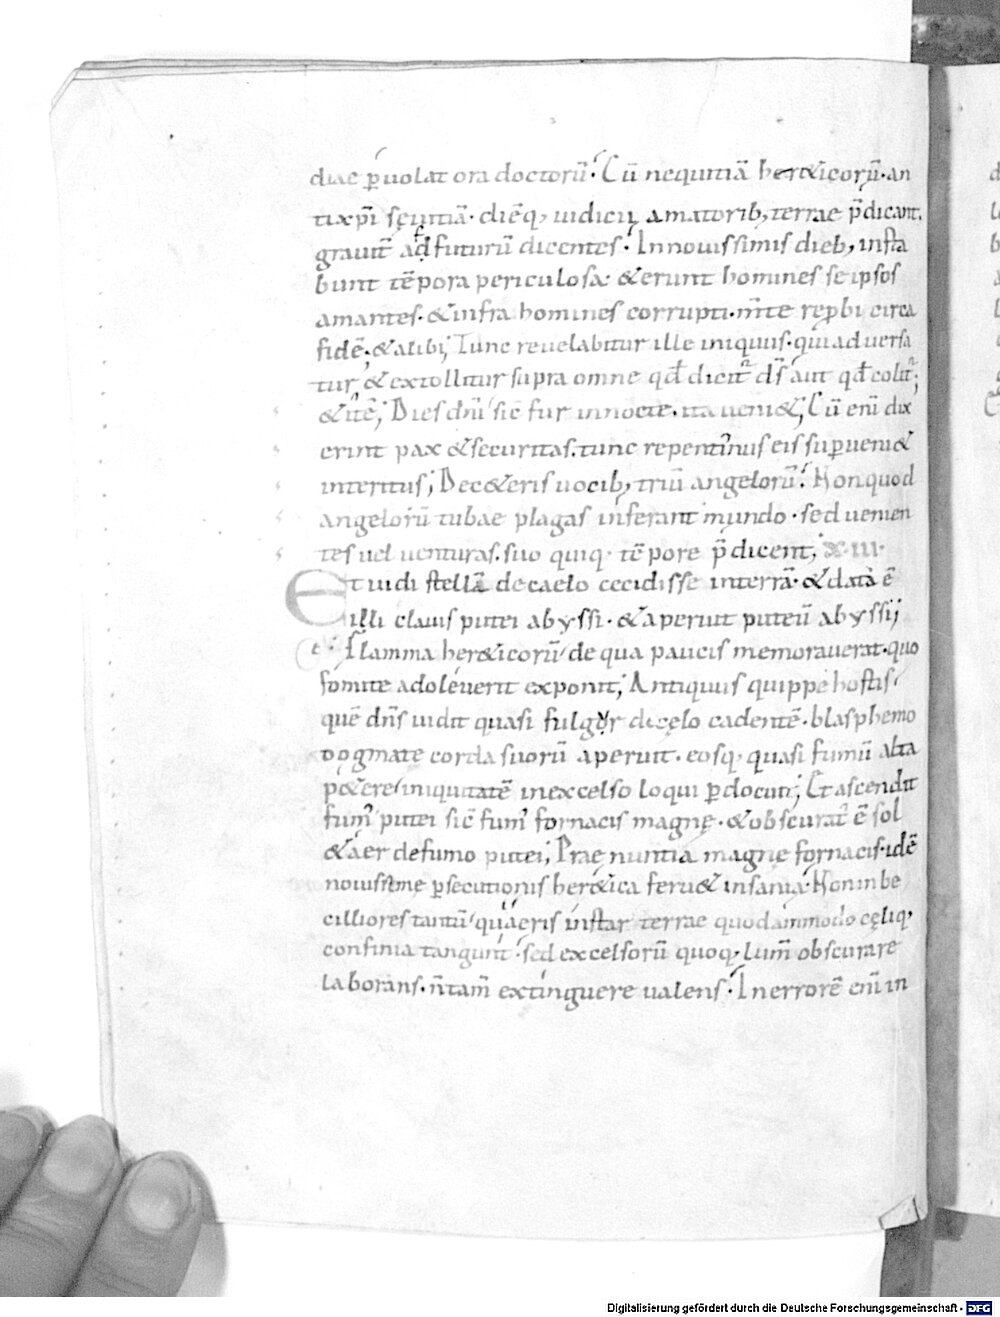 diae ꝑuolat ora doctorū. Cū nequitiā her&icorū. an
tixp̄i sęuitiā. diēq; iudicii amatorib; terrae p̄dicant.
grauit̄ ad futurū dicentes. In nouissimis dieb; insta
bunt tēpora periculosa. & erunt homines se ipsos
amantes. & infra homines corrupti. m̄te reꝓbi circa
fidē. & alibi; Tunc reuelabitur ille iniquus. qui aduersa
tur, & extollitur supra omne qđ dicit̄ d̄s aut qđ colit̄;
& itē; Dies dn̄i sic̄ fur in nocte. ita ueni&; Cū eni̅ dix
erint pax & securitas. tunc repentinus eis suꝑueni&
interitus; Dec&eris uocib; triū angelorū. Non quod
angelorū tubae plagas inferant mundo. sed uenien
tes uel uenturas. suo quiq; tēpore p̄dicent; XIII.
Et uidi stellā de caelo cecidisse in terrā. & data ē
illi clauis putei abyssi. & aperuit puteū abyssi;
Flamma her&icorū de qua paucis memorauerat. quo
fomite adoleuerit exponit; Antiquus quippe hostis
quē dn̄s uidit quasi fulgur de cęlo cadentē. blasphemo
dogmate corda suorū aperuit. eosq; quasi fumū alta
p&ere iniquitatē in excelso loqui ꝑdocuit; Et ascendit
fum̄ putei sic̄ fum̄ fornacis magnę. & obscurat̄ ē sol
& aer de fumo putei; Praenuntia magne fornacis. idē
nouissime ꝑsecutionis her&ica feru& insania. Non inbe
cilliores tantū qui aeris instar terrae quodammodo cęliq;
confinia tangunt. sed excelsorū quoq; lum̄ obscurare
laborans. n̄ tam̄ extinguere ualens. In errorē eni̅ in
Digitalisierung gefördert durch die Deutsche Forschungsgemeinschaft - DFG